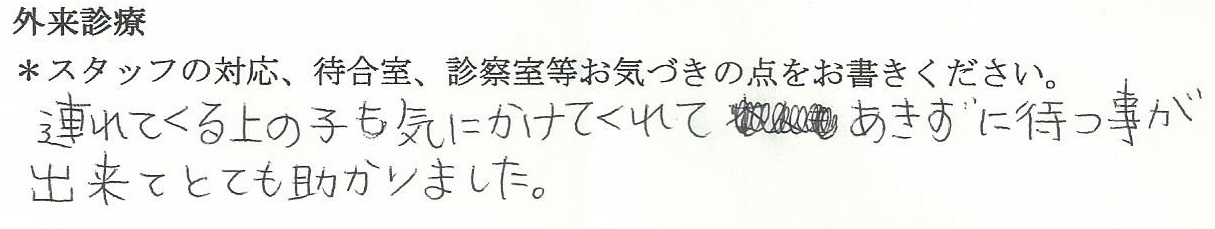 外来診療
＊スタッフの対応、待合室、診察室等お気づきの点をお書きください。
連れてくる上の子も気にかけてくれて あきずに待つ事が
出来てとても助かりました。